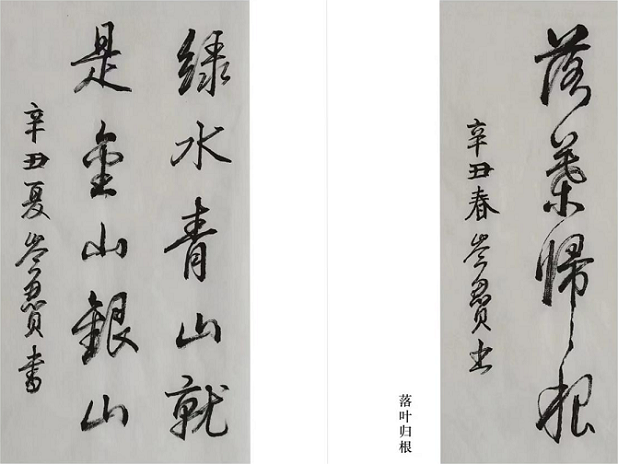 绿水青山就
是金山銀山
辛丑夏岑贤書
落葉歸根
辛丑春岑贤书
落叶归根